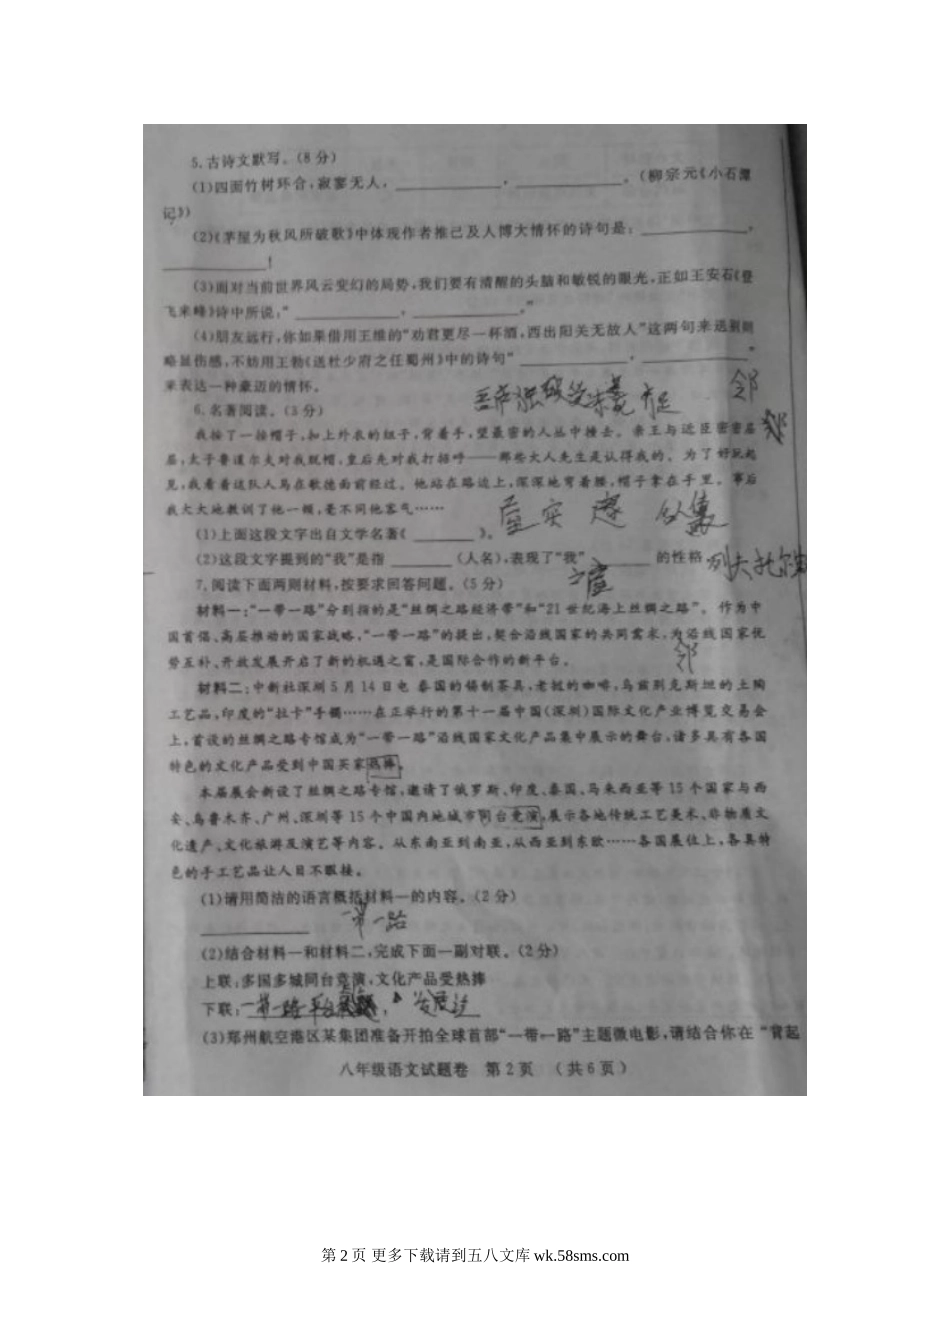 5.古诗文默写。(8分)
(1)四面竹树环合,寂寥无人,____________,____________。(柳宗元《小石潭
记》)
(2)《茅屋为秋风所破歌》中体现作者推己及人博大情怀的诗句是:____________,
____________!
(3)面对当前世界风云变幻的局势,我们要有清醒的头脑和敏锐的眼光,正如王安石《登
飞来峰》诗中所说:“____________,____________。”
(4)朋友远行,你如果借用王维的“劝君更尽一杯酒,西出阳关无故人”这两句来送别则
略显伤感,不妨用王勃《送杜少府之任蜀州》中的诗句“____________,____________”
来表达一种豪迈的情怀。
6.名著阅读。(3分)
我按了一按帽子,扣上外衣的纽子,背着手,望最密的人丛中撞去。亲王与近臣密密层
层,太子鲁道尔夫对我脱帽,皇后先对我打招呼——那些大人先生是认得我的。为了好玩起
见,我看着这队人马在歌德面前经过。他站在路边上,深深地弯着腰,帽子拿在手里。事后
我大大地教训了他一顿,毫不同他客气……
(1)上面这段文字出自文学名著《________》。
(2)这段文字提到的“我”是指________(人名),表现了“我”________的性格
7.阅读下面两则材料,按要求回答问题。(5分)
材料一:“一带一路”分别指的是“丝绸之路经济带”和“21世纪海上丝绸之路”。作为中
国首倡、高层推动的国家战略,“一带一路”的提出,契合沿线国家的共同需求,为沿线国家优
势互补、开放发展开启了新的机遇之窗,是国际合作的新平台。
材料二:中新社深圳5月14日电 泰国的锡制茶具,老挝的咖啡,乌兹别克斯坦的土陶
工艺品,印度的“拉卡”手镯……在正举行的第十一届中国(深圳)国际文化产业博览交易会
上,首设的丝绸之路专馆成为“一带一路”沿线国家文化产品集中展示的舞台,诸多具有各国
特色的文化产品受到中国买家热捧。
本届展会新设了丝绸之路专馆,邀请了俄罗斯、印度、泰国、马来西亚等15个国家与西
安、乌鲁木齐、广州、深圳等15个中国内地城市同台竞演,展示各地传统工艺美术、非物质文
化遗产、文化旅游及演艺等内容。从东南亚到南亚,从西亚到东欧……各国展位上,各具特
色的手工艺品让人目不暇接。
(1)请用简洁的语言概括材料一的内容。(2分)
____________ 一带一路
(2)结合材料一和材料二,完成下面一副对联。(2分)
上联:多国多城同台竞演,文化产品受热捧
下联:一带一路平台
(3)郑州航空港区某集团准备开拍全球首部“一带一路”主题微电影,请结合你在“背起
八年级语文试题卷 第2页 (共6页)
第 2 页 更多下载请到五八文库 wk.58sms.com